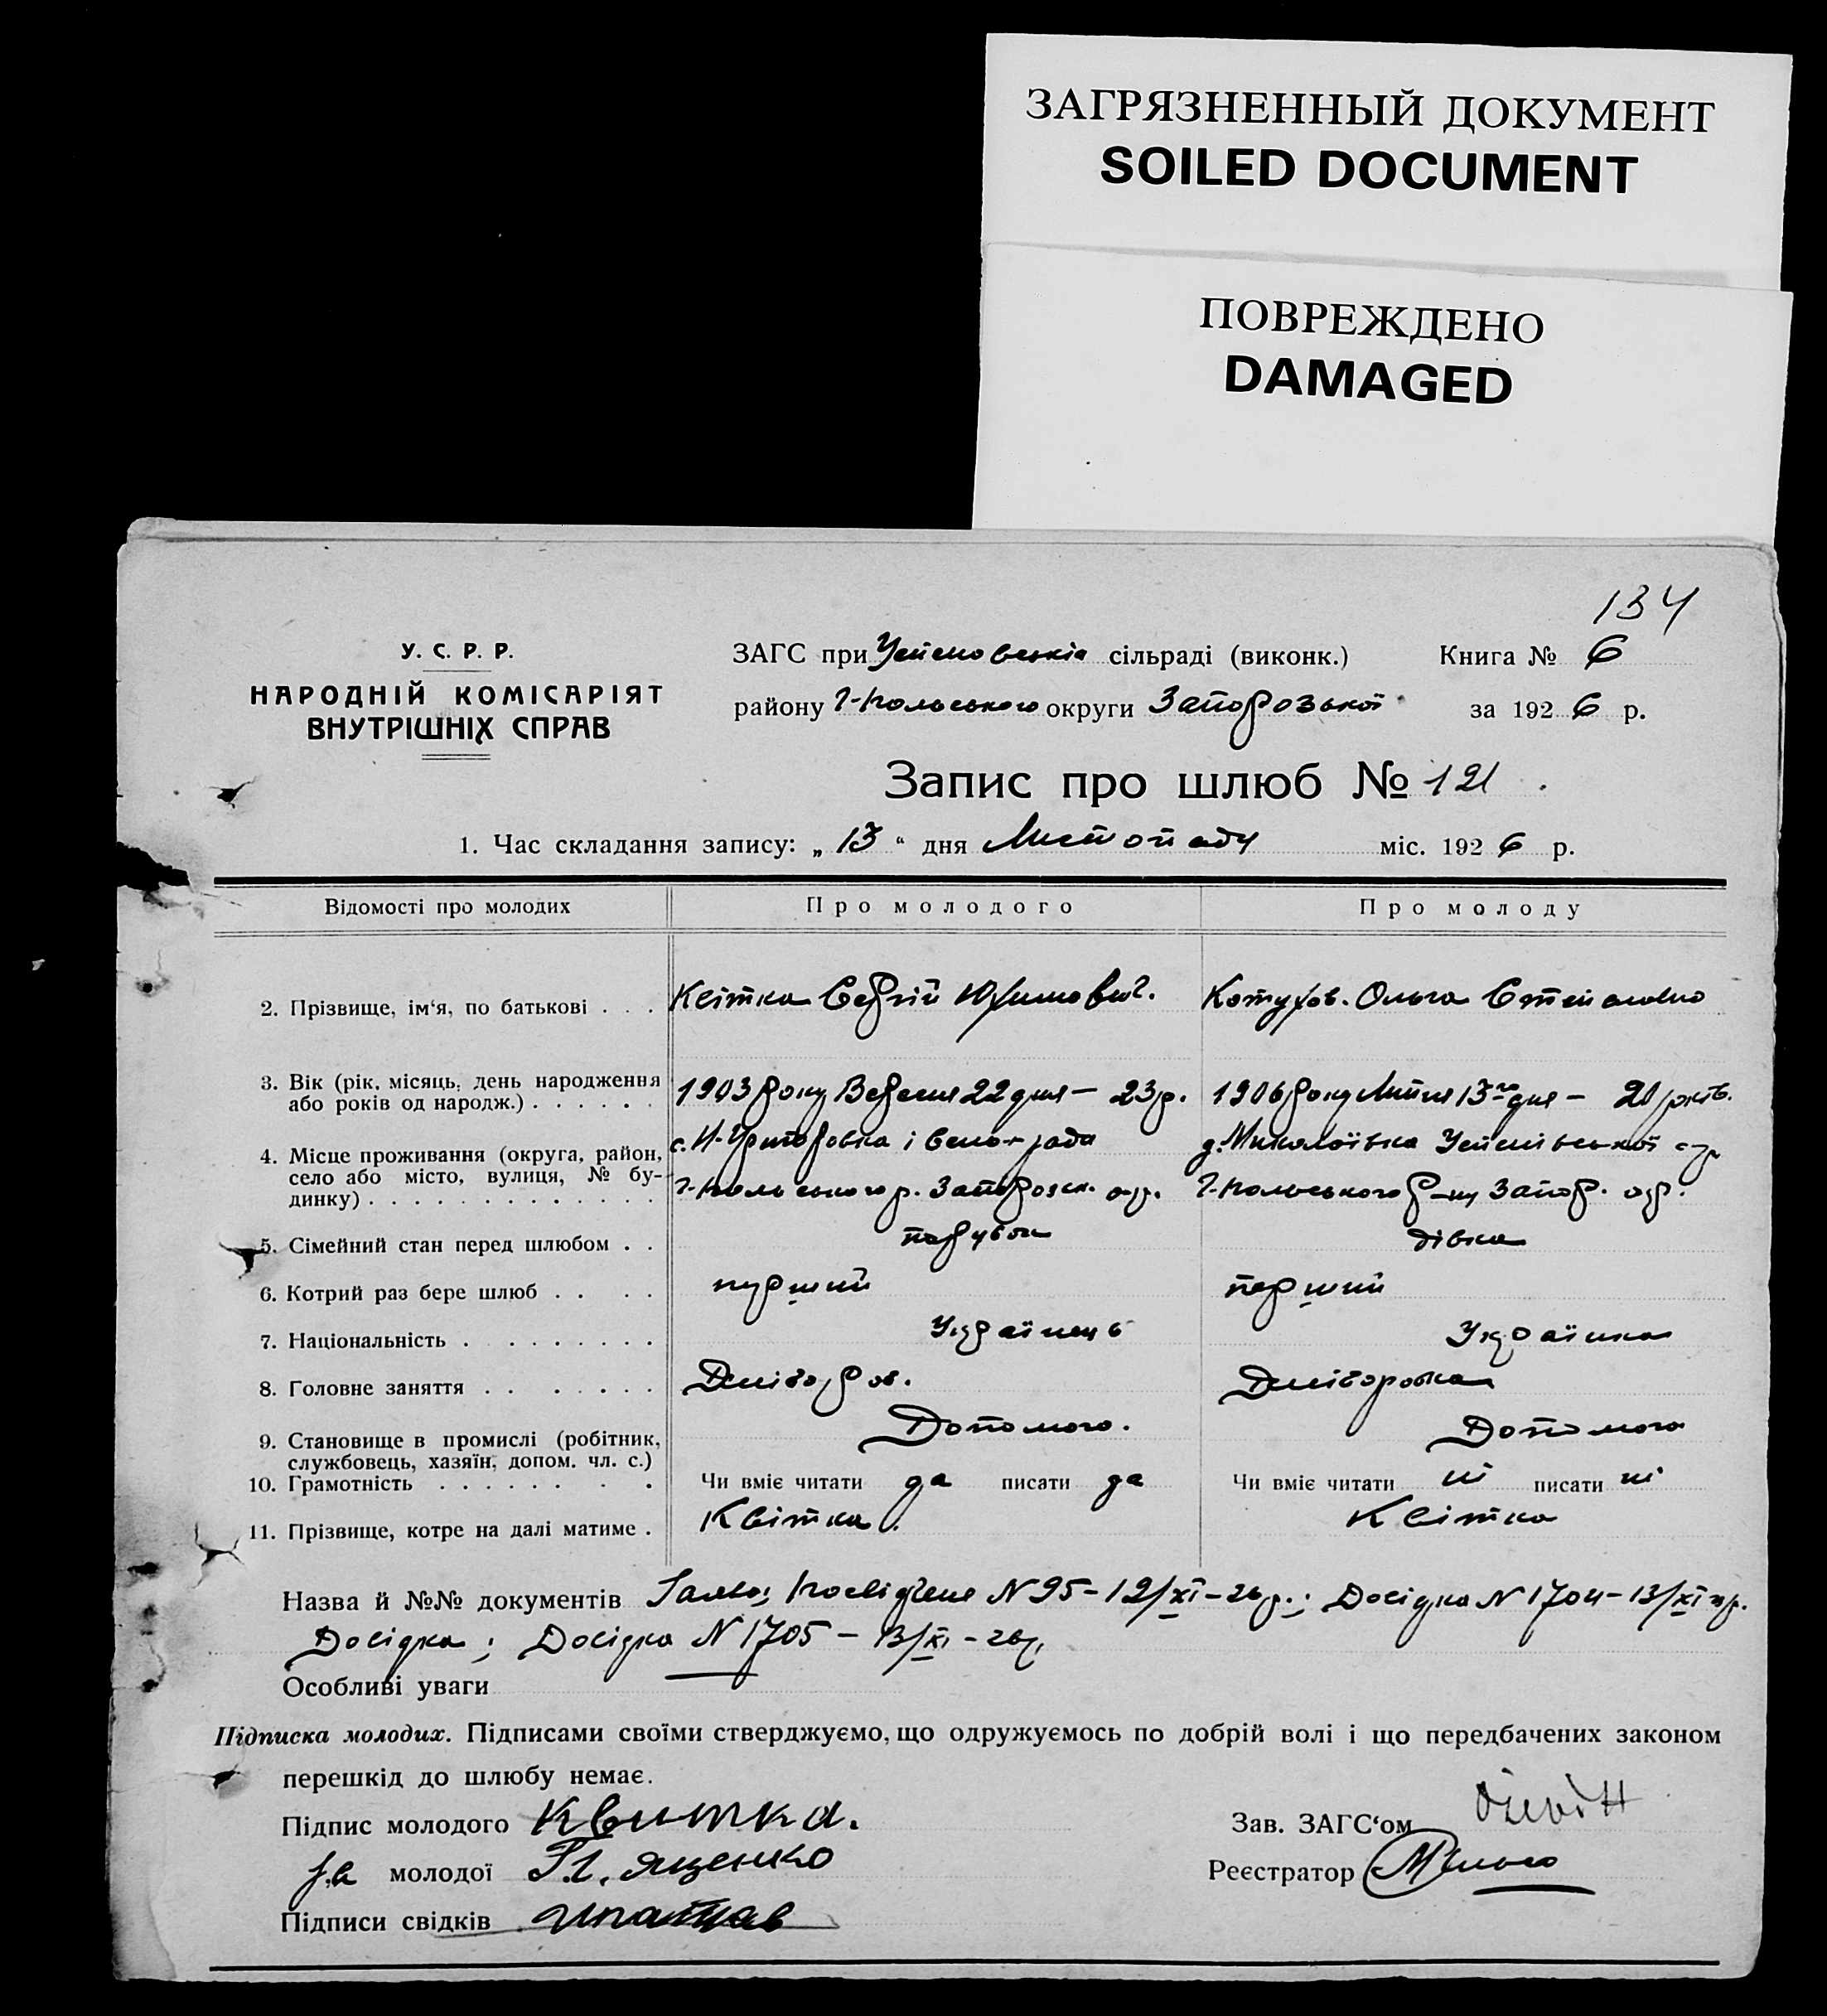 ЗАГРЯЗНЕННЫЙ ДОКУМЕНТ
SOILED DOCUMENT
ПОВРЕЖДЕНО
DAMAGED
134
У. С. Р. Р.
НАРОДНІЙ КОМІСАРІЯТ
ВНУТРІШНІХ СПРАВ
ЗАГС при сільраді (виконк.) Книга № 6
району Г-Польського округи Запорозької за 1926 р.
Запис про шлюб № 121
1. Час складання запису: „ 13 “ дня Листопаду міс. 1926 р.
Відомості про молодих Про молодого Про молоду
2. Прізвище, ім‘я, по батькові . . . Квітка Сергій Юхимович. Ольга Степановна
3. Вік (рік, місяць, день народження
або років од народж.) . . . . . . 1903 року Вересня 22 дня — 23 р. 1906 року Липня 13го дня — 20 років.
4. Місце проживання (округа, район,
село або місто, вулиця, № бу-
динку) . . . . . . . . . . . . .
д. Миколаївка Успенівської
Г-Польського р. Запорозск. окр. Г-Польського р-ну Запор. окр.
5. Сімейний стан перед шлюбом . . парубок дівка
6. Котрий раз бере шлюб . . . . перший
7. Національність . . . . . . . . . Українець Українка
8. Головне заняття . . . . . . . . Хлібороб. Хліборобка
9. Становище в промислі (робітник,
службовець, хазяїн, допом. чл. с.) Допомога. Допомога
10. Грамотність . . . . . . . . . Чи вміє читати да писати да Чи вміє читати ні писати ні
11. Прізвище, котре на далі матиме . Квітка. Квітка
Назва й №№ документів Заява; N 95 – 12/XI – 26 р.; Досідка N 1704 – 13/XI
Досідка; Досідка N 1705 – 13/XI – 26 р.
Особливі уваги
Підписка молодих. Підписами своїми стверджуємо, що одружуємось по добрій волі і що передбачених законом
перешкід до шлюбу немає.
Підпис молодого Квитка. Зав. ЗАГС‘ом
молодої Ященко Реєстратор
Підписи свідків